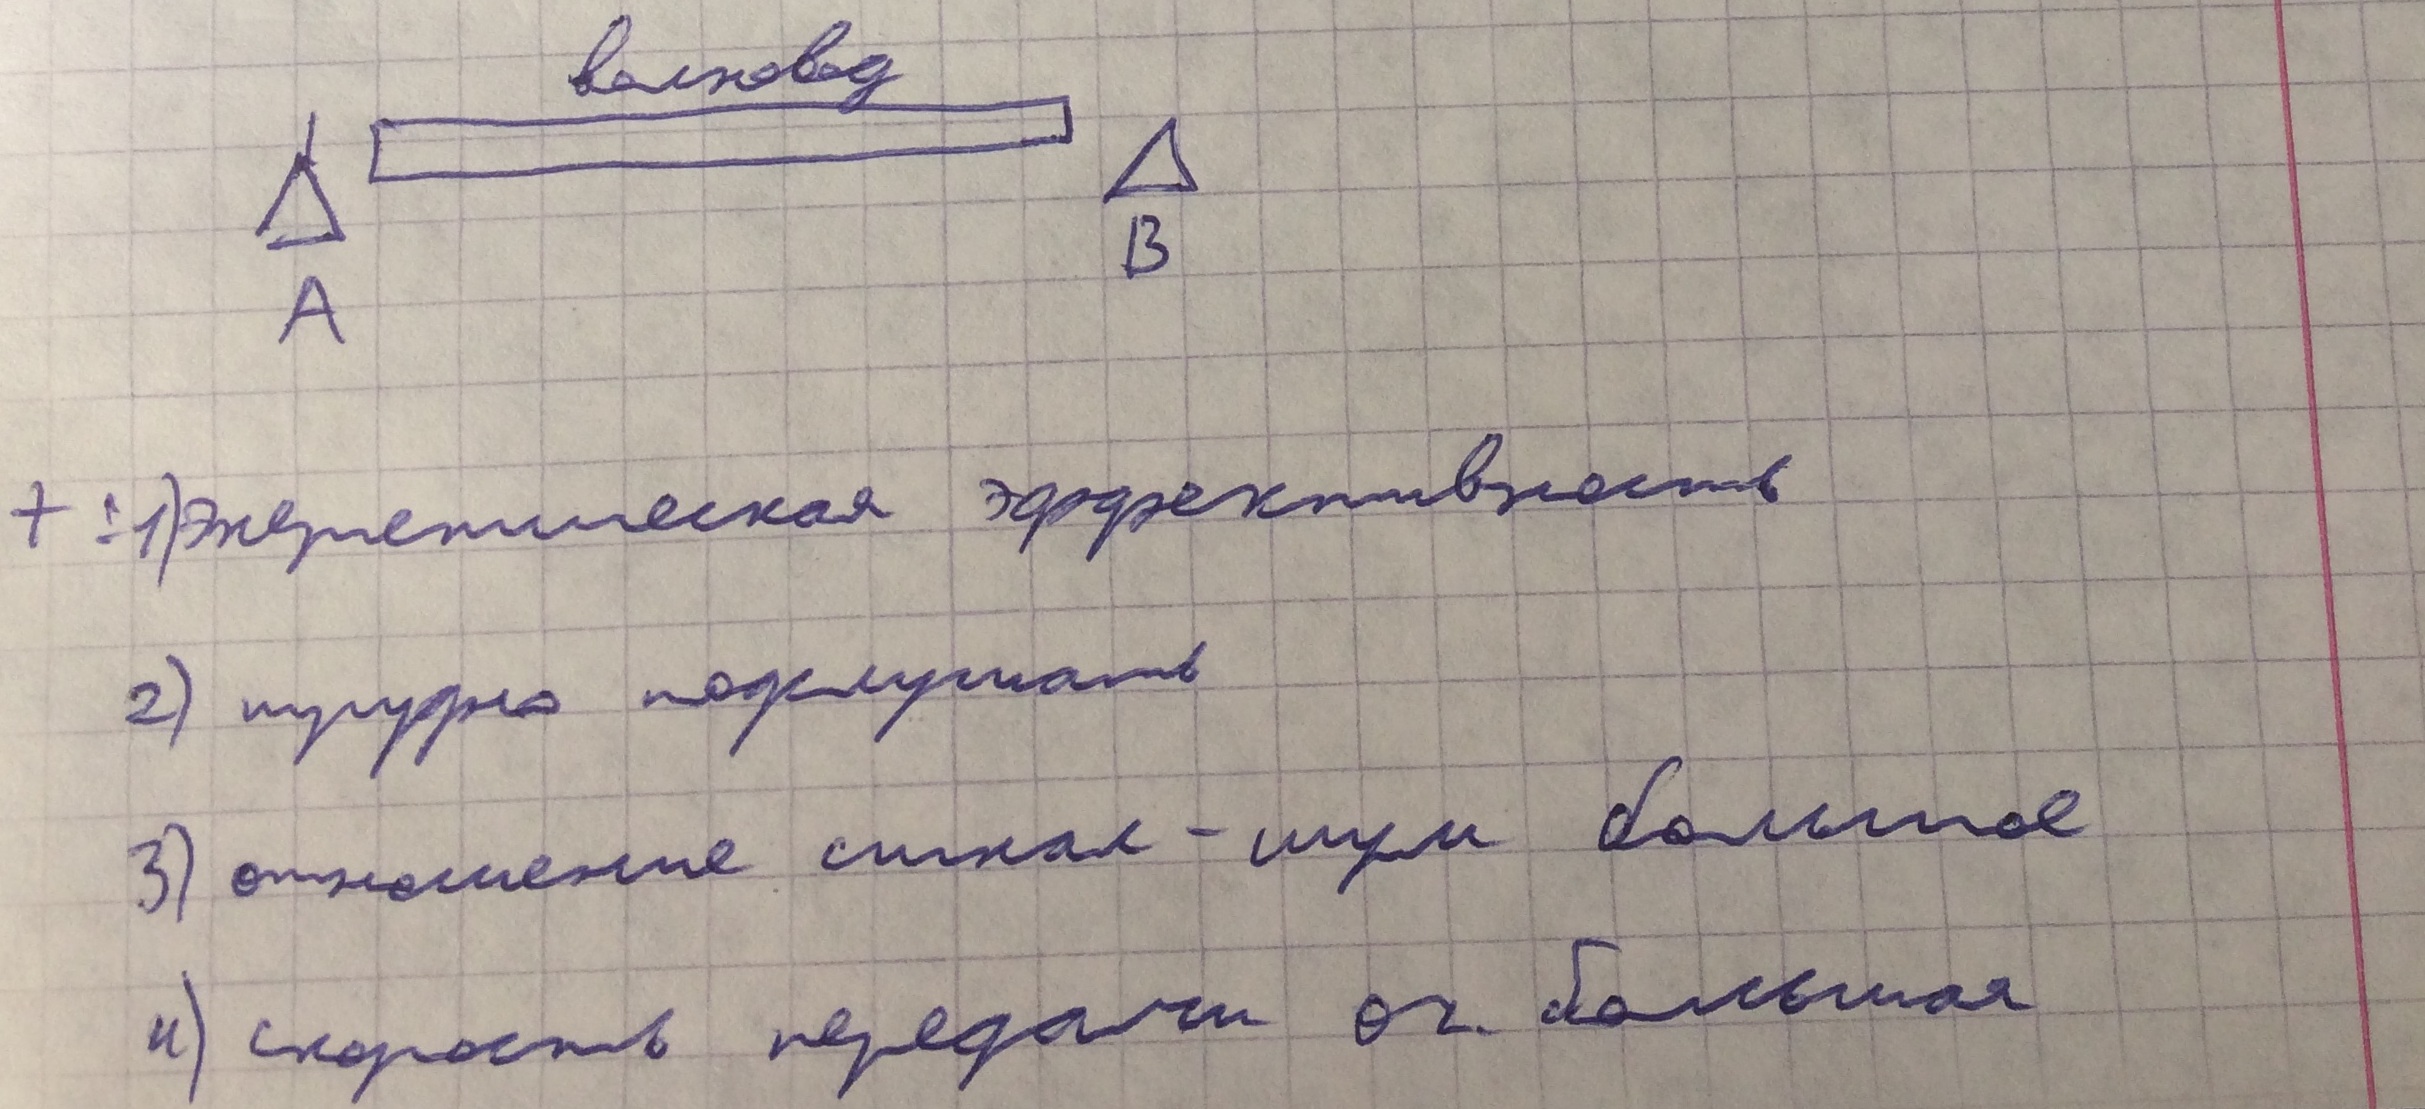 волновод
А
В
+ : 1) Энергетическая эффективность
2) трудно подслушать
3) отношение сигнал - шум большое
4) скорость передачи оч. большая